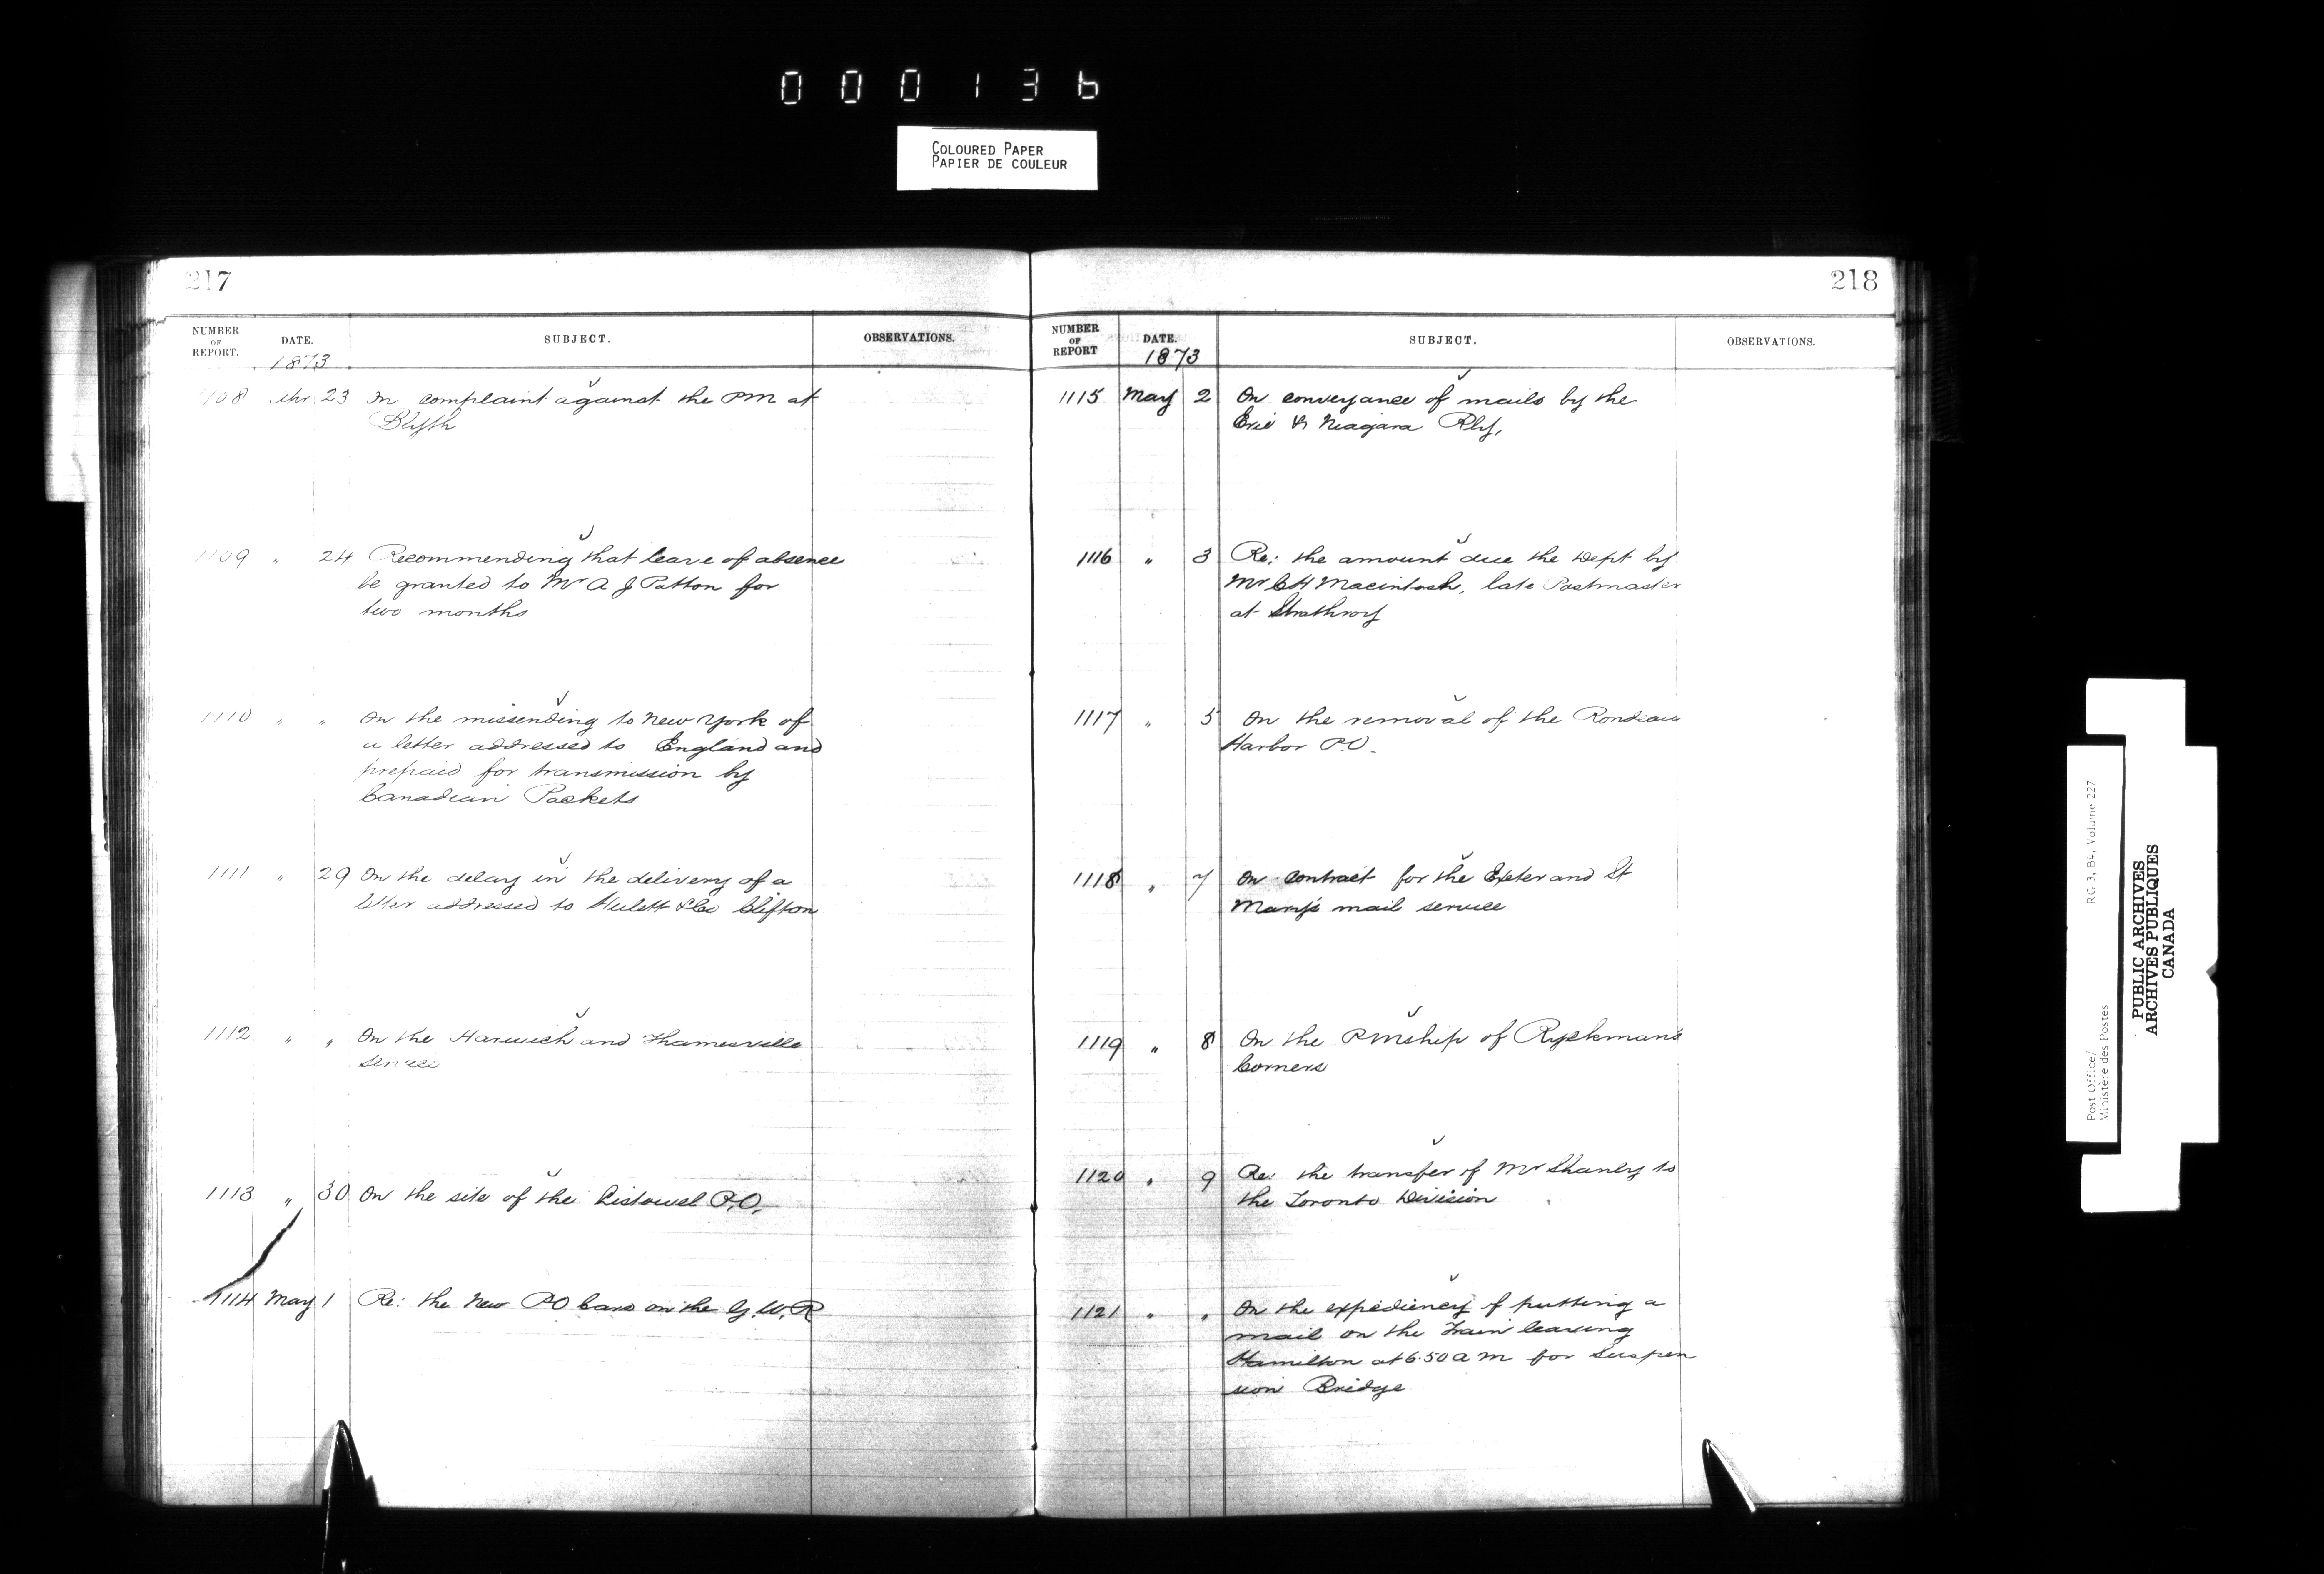 000136
COLOURED PAPER
PAPIER DE COULEUR
217
NUMBER OF REPORT. DATE. SUBJECT. OBSERVATIONS.
1873
1108 Apr 23 On complaint against the PM at
Blyth
1109 " 24 Recommending that leave of absence
be granted to Mr A J Patton for
two months
1110 " " On the missending to New York of
a letter addressed to England and
prepaid for transmission by
Canadian Packets
1111 " 29 On the delay in the delivery of a
letter addressed to Hulett & Co Clifton
1112 " " On the Harwich and Thamesville
service
1113 " 30 On the site of the Listowel P.O.
1114 May 1 Re: the New PO Cars on the G.W.R
218
NUMBER OF REPORT DATE. SUBJECT. OBSERVATIONS.
1873
1115 May 2 On conveyance of mails by the
Erie & Niagara Rly,
1116 " 3 Re: the amount due the Dept by
Mr C H Macintosh, late Postmaster
at Strathroy
1117 " 5 On the removal of the Rondeau
Harbor P.O.
1118 " 7 On contract for the Exeter and St
Mary's mail service
1119 " 8 On the PMship of Ryckman's
Corners
1120 " 9 Re: the transfer of Mr Shanly to
the Toronto Division
1121 " " On the expediency of putting a
mail on the Train leaving
Hamilton at 6.50 a m for Suspen
sion Bridge
Post Office/
Ministère des Postes
RG 3, B4, Volume 227
PUBLIC ARCHIVES
ARCHIVES PUBLIQUES
CANADA